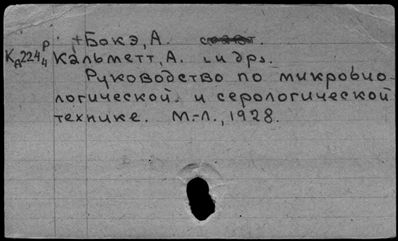 +Бокэ, А.
Кальметт, А. и др.
Руководство по микробио-
логической и серологической
технике. М.-Л., 1928.